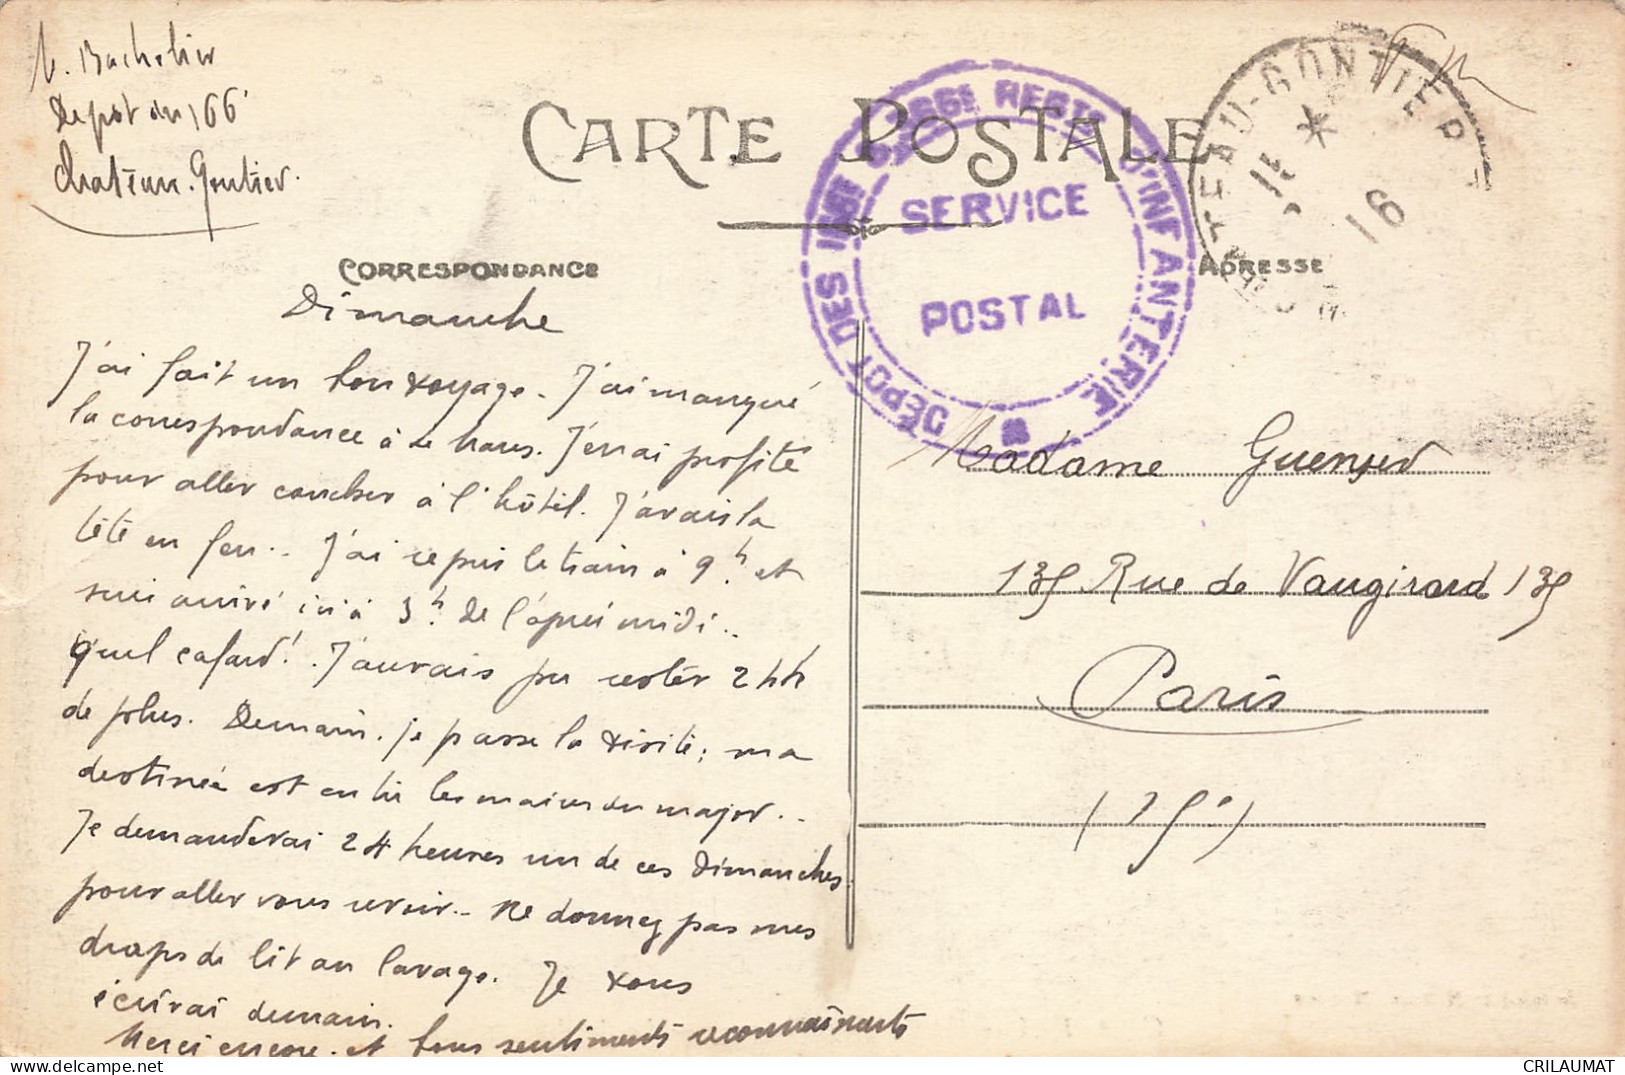 V. Bachelier
Depot du 166ᵉ
Chateau-Gontier.
CARTE POSTALE
DÉPOT DES D'INFANTERIE
SERVICE
POSTAL
CHATEAU-GONTIER
16
CORRESPONDANCE
ADRESSE
Dimanche
J'ai fait un bon voyage. J'ai manqué
la correspondance à Le Mans. J'en ai profité
pour aller coucher à l'hôtel. J'avais la
tête en feu.. J'ai repris le train à 9h et
suis arrivé ici à 3h de l'après midi..
quel cafard!. J'aurais pu rester 24h
de plus. Demain. je passe la visite; ma
destinée est entre les mains du major..
Je demanderai 24 heures un de ces Dimanches
pour aller vous revoir.. Ne donnez pas mes
draps de lit au lavage. Je vous
écrirai demain.
Merci encore. et bons sentiments reconnaissants
Madame
135 Rue de Vaugirard 135
Paris
(15e)
CRILAUMAT